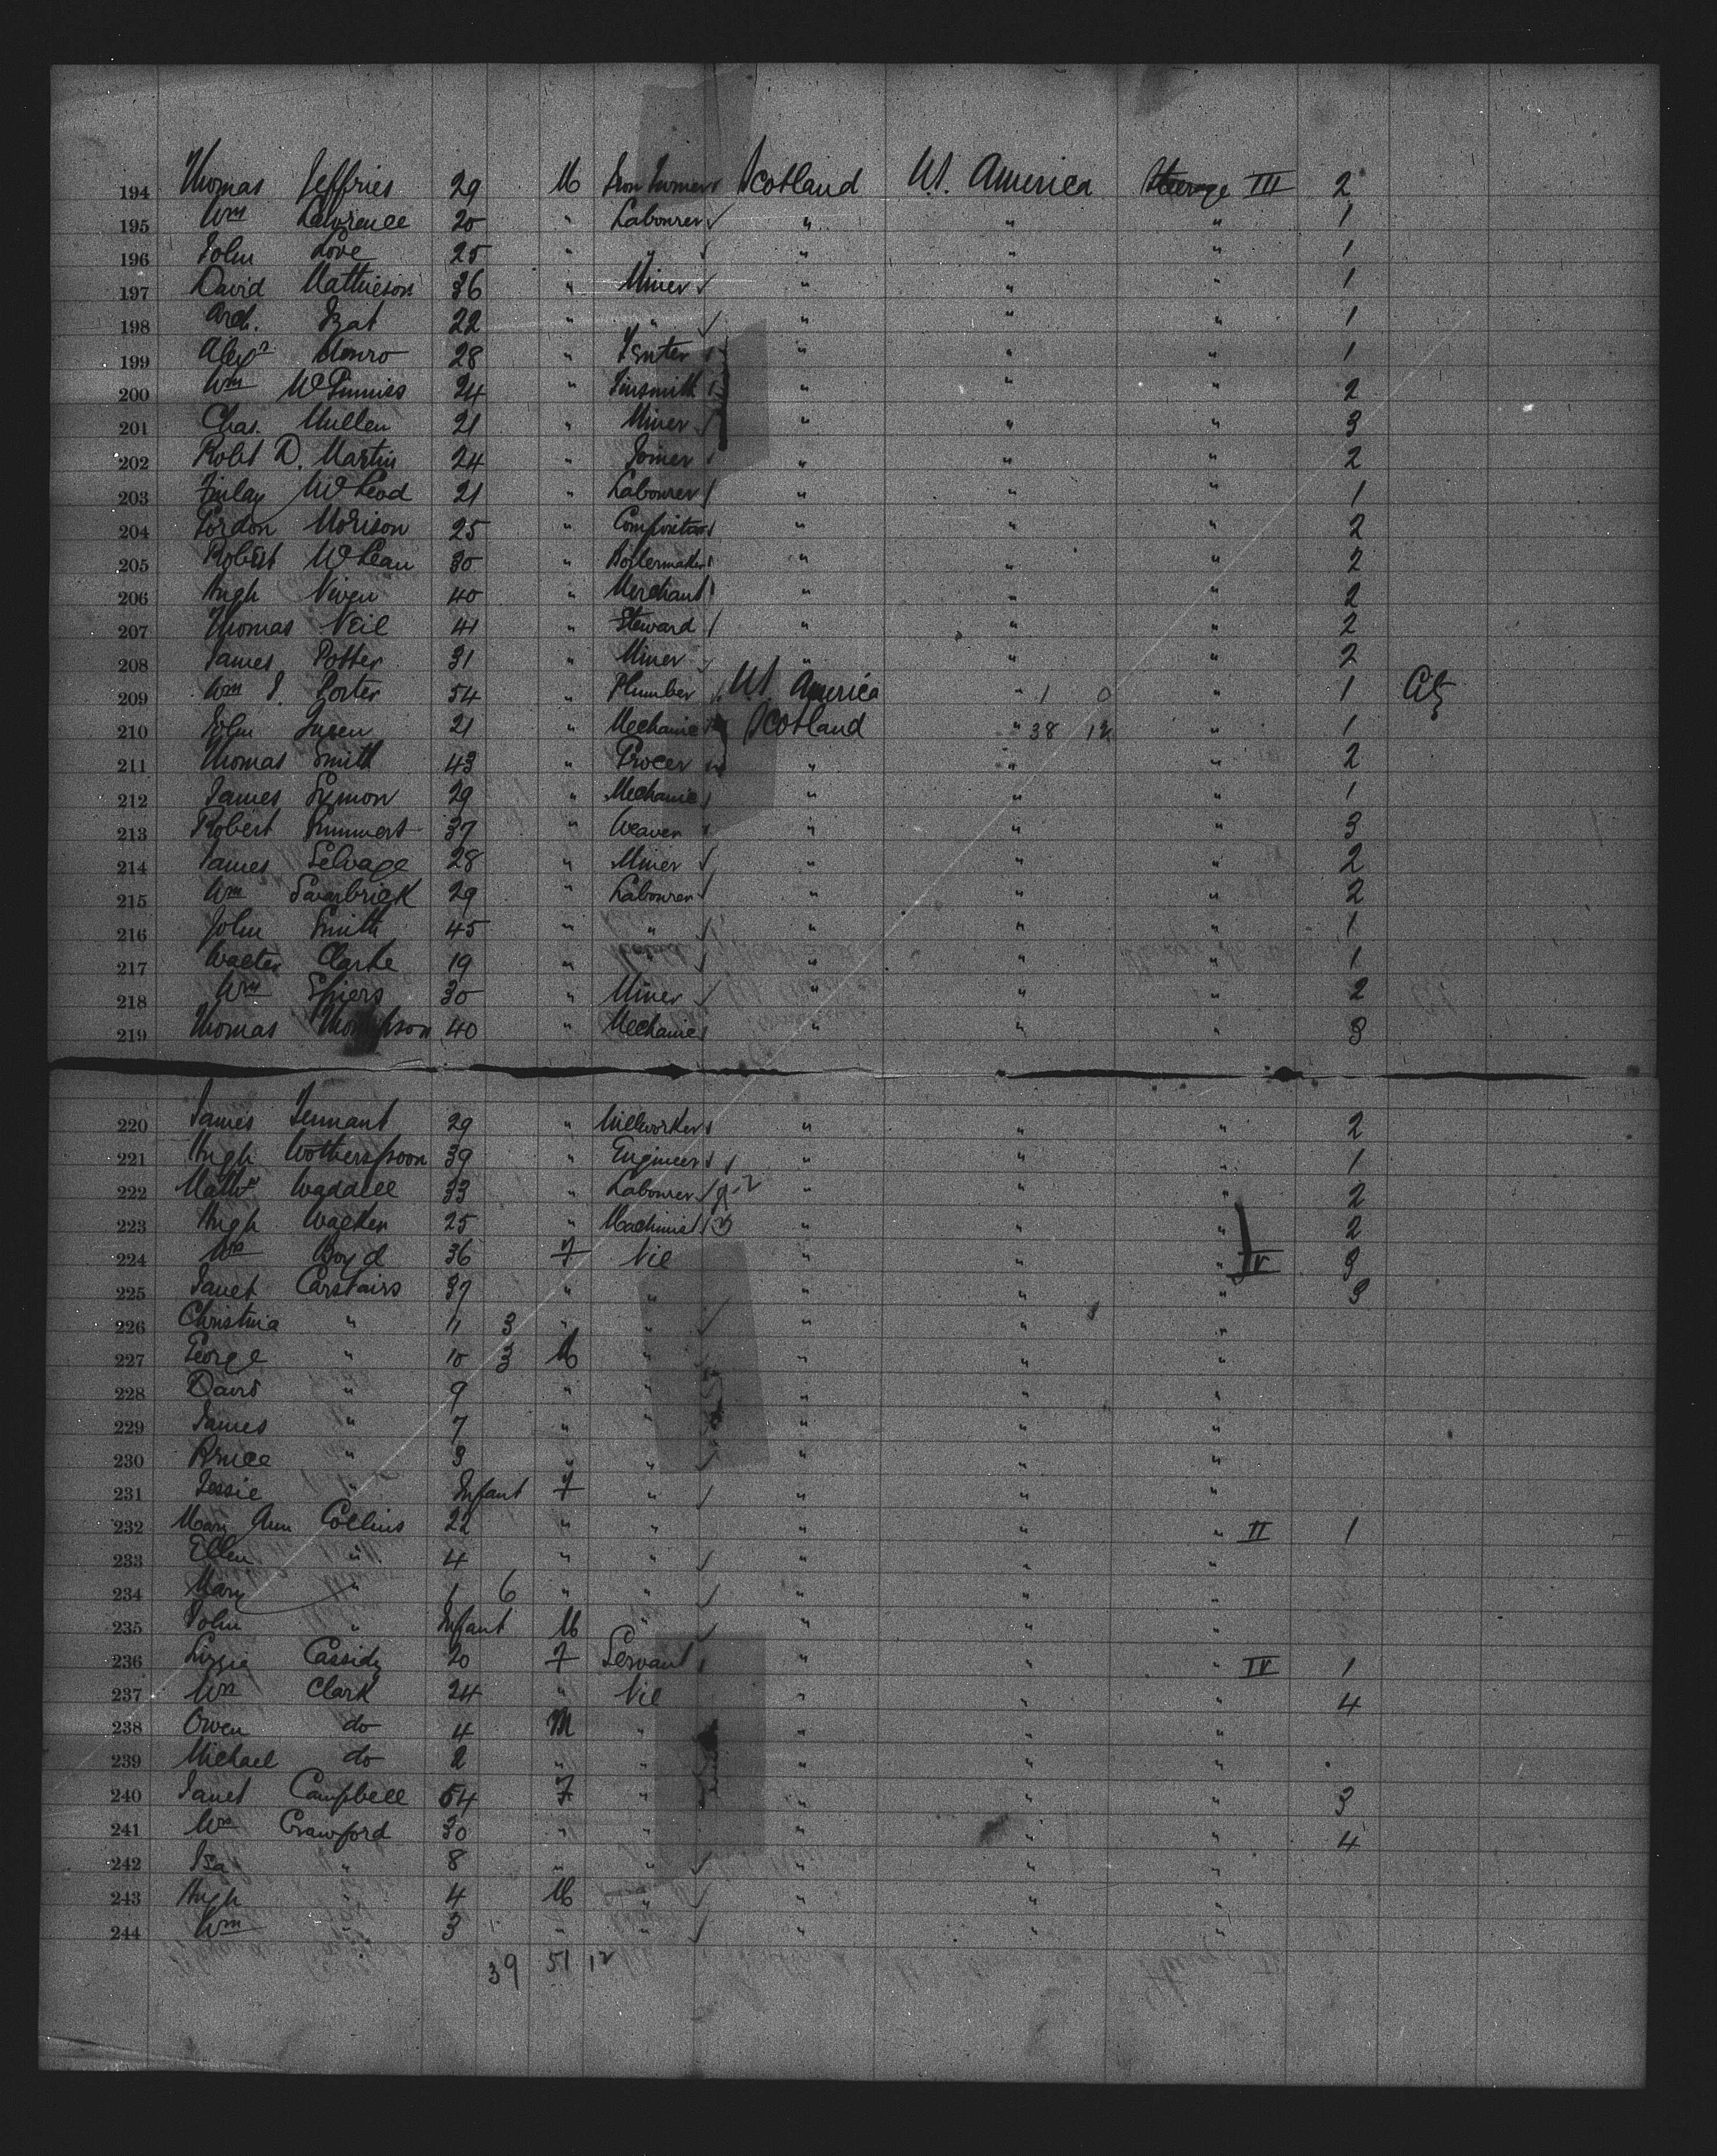 194 Thomas Jeffries 29 M Iron Turner Scotland U.S. America Steerage III 2
195 Wm Lawrence 20 " Labourer " " " 1
196 John Love 25 " " " " " 1
197 David Mathieson 36 " Miner " " " 1
198 Arch. Izat 22 " " " " " 1
199 Alexr Monro 28 " " " " 1
200 Wm 24 " Tinsmith " " " 2
201 Chas. Mullen 21 " Miner " " " 3
202 Robt D. Martin 24 " Joiner " " " 2
203 Finlay McLeod 21 " Labourer " " " 1
204 Gordon Morison 25 " Compositor " " " 2
205 Robert McLean 30 " Boilermaker " " " 2
206 Hugh Niven 40 " Merchant " " " 2
207 Thomas Neil 41 " Steward " " " 2
208 James Potter 31 " Miner " " " 2
209 Wm J. Porter 54 " Plumber U.S. America " 1 0 " 1
210 John 21 " Mechanic Scotland " 38 12 " 1
211 Thomas Smith 43 " Grocer " " " 2
212 James Symon 29 " Mechanic " " " 1
213 Robert 37 " Weaver " " " 3
214 James Selvage 28 " Miner " " " 2
215 Wm Swarbrick 29 " Labourer " " " 2
216 John Smith 45 " " " " " 1
217 Walter Clarke 19 " " " " 1
218 Wm Spiers 30 " Miner " " " 2
219 Thomas Thompson 40 " Mechanic " " " 3
220 James Tennant 29 " Millworker " " " 2
221 Hugh Wotherspoon 39 " Engineer " " " 1
222 Mathw Waddell 33 " Labourer " " " 2
223 Hugh Walker 25 " Machinist " " " 2
224 Mrs Boyd 36 F Nil " " " IV 3
225 Janet Carstairs 37 " " " " " 3
226 Christina " 11 3 " " " " "
227 George " 10 3 M " " " "
228 David " 9 " " " " "
229 James " 7 " " " " "
230 Bruce " 3 " " " " "
231 Jessie " Infant F " " " "
232 Mary Ann Collins 22 " " " " " II 1
233 Ellen " 4 " " " " "
234 Mary " 1 6 " " " " "
235 John " Infant M " " " "
236 Lizzie Cassidy 20 F Servant " " " IV 1
237 Mrs Clark 24 " Nil " " " 4
238 Owen do 4 M " " " "
239 Michael do 2 " " " " "
240 Janet Campbell 54 F " " " " 3
241 Mrs Crawford 30 " " " " " 4
242 Isa " 8 " " " " "
243 Hugh " 4 M " " " "
244 Wm " 3 " " " " "
39 51 12